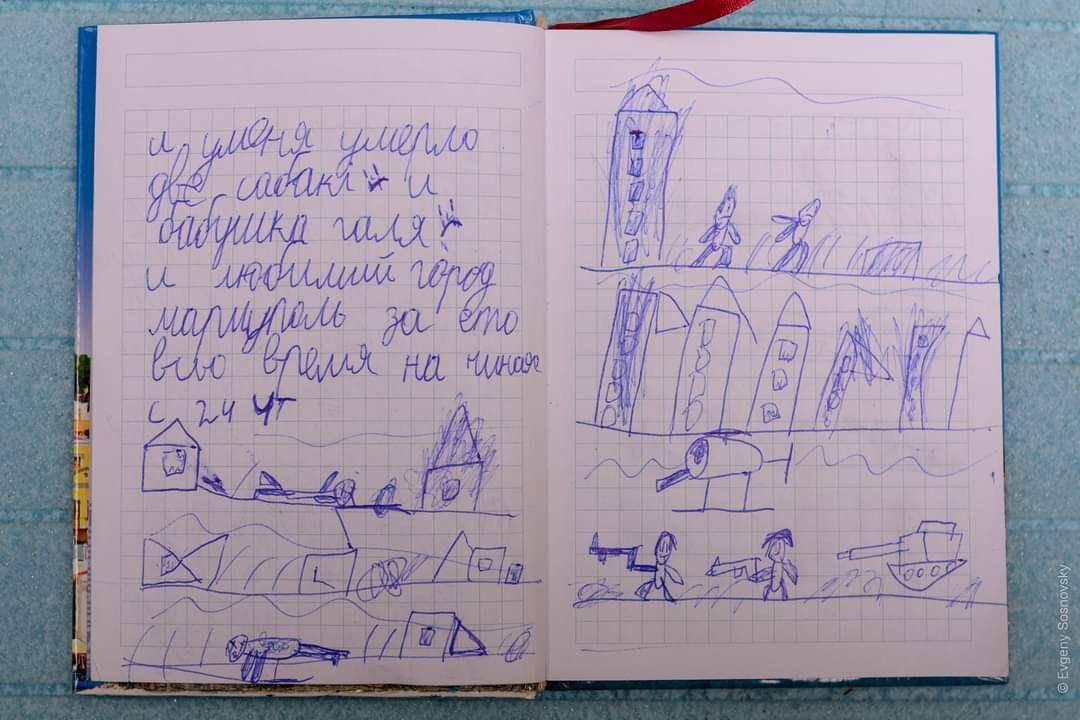 и уменя умерло
две сабакі и
бабушка галя
и любимий город
маріуполь за ето
всьо время на чиная
с 24 чт
© Evgeny Sosnovsky